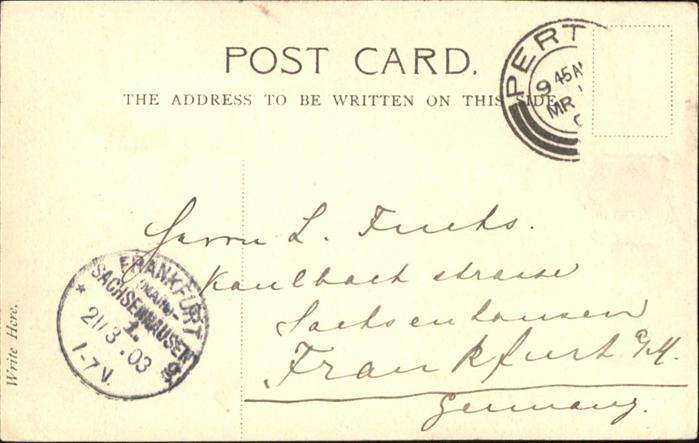 POST CARD.
THE ADDRESS TO BE WRITTEN ON THIS SIDE
PERT
9 45 AM
MR
Herrn L. Fuchs.
Kaulbach strasse
Sachsenhausen
Frankfurt a/M.
Germany.
FRANKFURT
(MAIN)-
SACHSENHAUSEN
1.
21/3.03
1-7V.
Write Here.